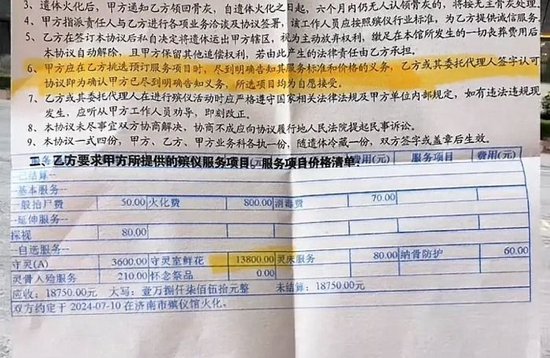 3、遗体火化后，甲方通知乙方领回骨灰，自遗体火化之日起，六个月内仍无人认领骨灰的，将按无主骨灰处理。
4、甲方指派责任人与乙方进行各项业务洽谈及协议签署，该工作人员应按照殡仪行业标准，为乙方提供诚信服务。
5、乙方在签订本协议后私自决定将遗体运出甲方辖区，视为主动放弃权利，缴足在本馆所发生的一切丧葬费用后
本协议自动解除，且甲方保留其他追偿权利，若由此产生的法律责任由乙方承担。
6、甲方应在乙方挑选预订服务项目时，尽到明确告知其服务标准和价格的义务，乙方或其委托代理人签字认可
协议即为确认甲方已尽到明确告知义务，所选项目均为自愿接受。
7、乙方或其委托代理人在进行殡仪活动时应严格遵守国家相关法律法规及甲方单位内部规定，如有违法违规现
发生，应听从甲方工作人员劝导，即刻改正。
8、本协议未尽事宜双方协商解决，协商不成应向协议履行地人民法院提起民事诉讼。
9、本协议一式四份，甲方、乙方、甲方业务科各执一份、随遗体冷藏一份，双方签字或盖章后生效。
三、乙方要求甲方所提供的殡仪服务项目、服务项目价格清单：
费用(元) 服务项目 费用(元)
--已结算--
--基本服务--
一般抬尸费 50.00 火化费 800.00 消毒费 70.00
--延伸服务--
探视 80.00
--自选服务--
守灵(A) 3600.00 守灵室鲜花 13800.00 灵床服务 80.00 纳骨防护 60.00
灵骨入殓服务 210.00 怀念祭品 0.00
应收：18750.00元 大写：壹万捌仟柒佰伍拾元整 未结算：18750.00元
双方约定于 2024-07-10 在济南市殡仪馆火化。